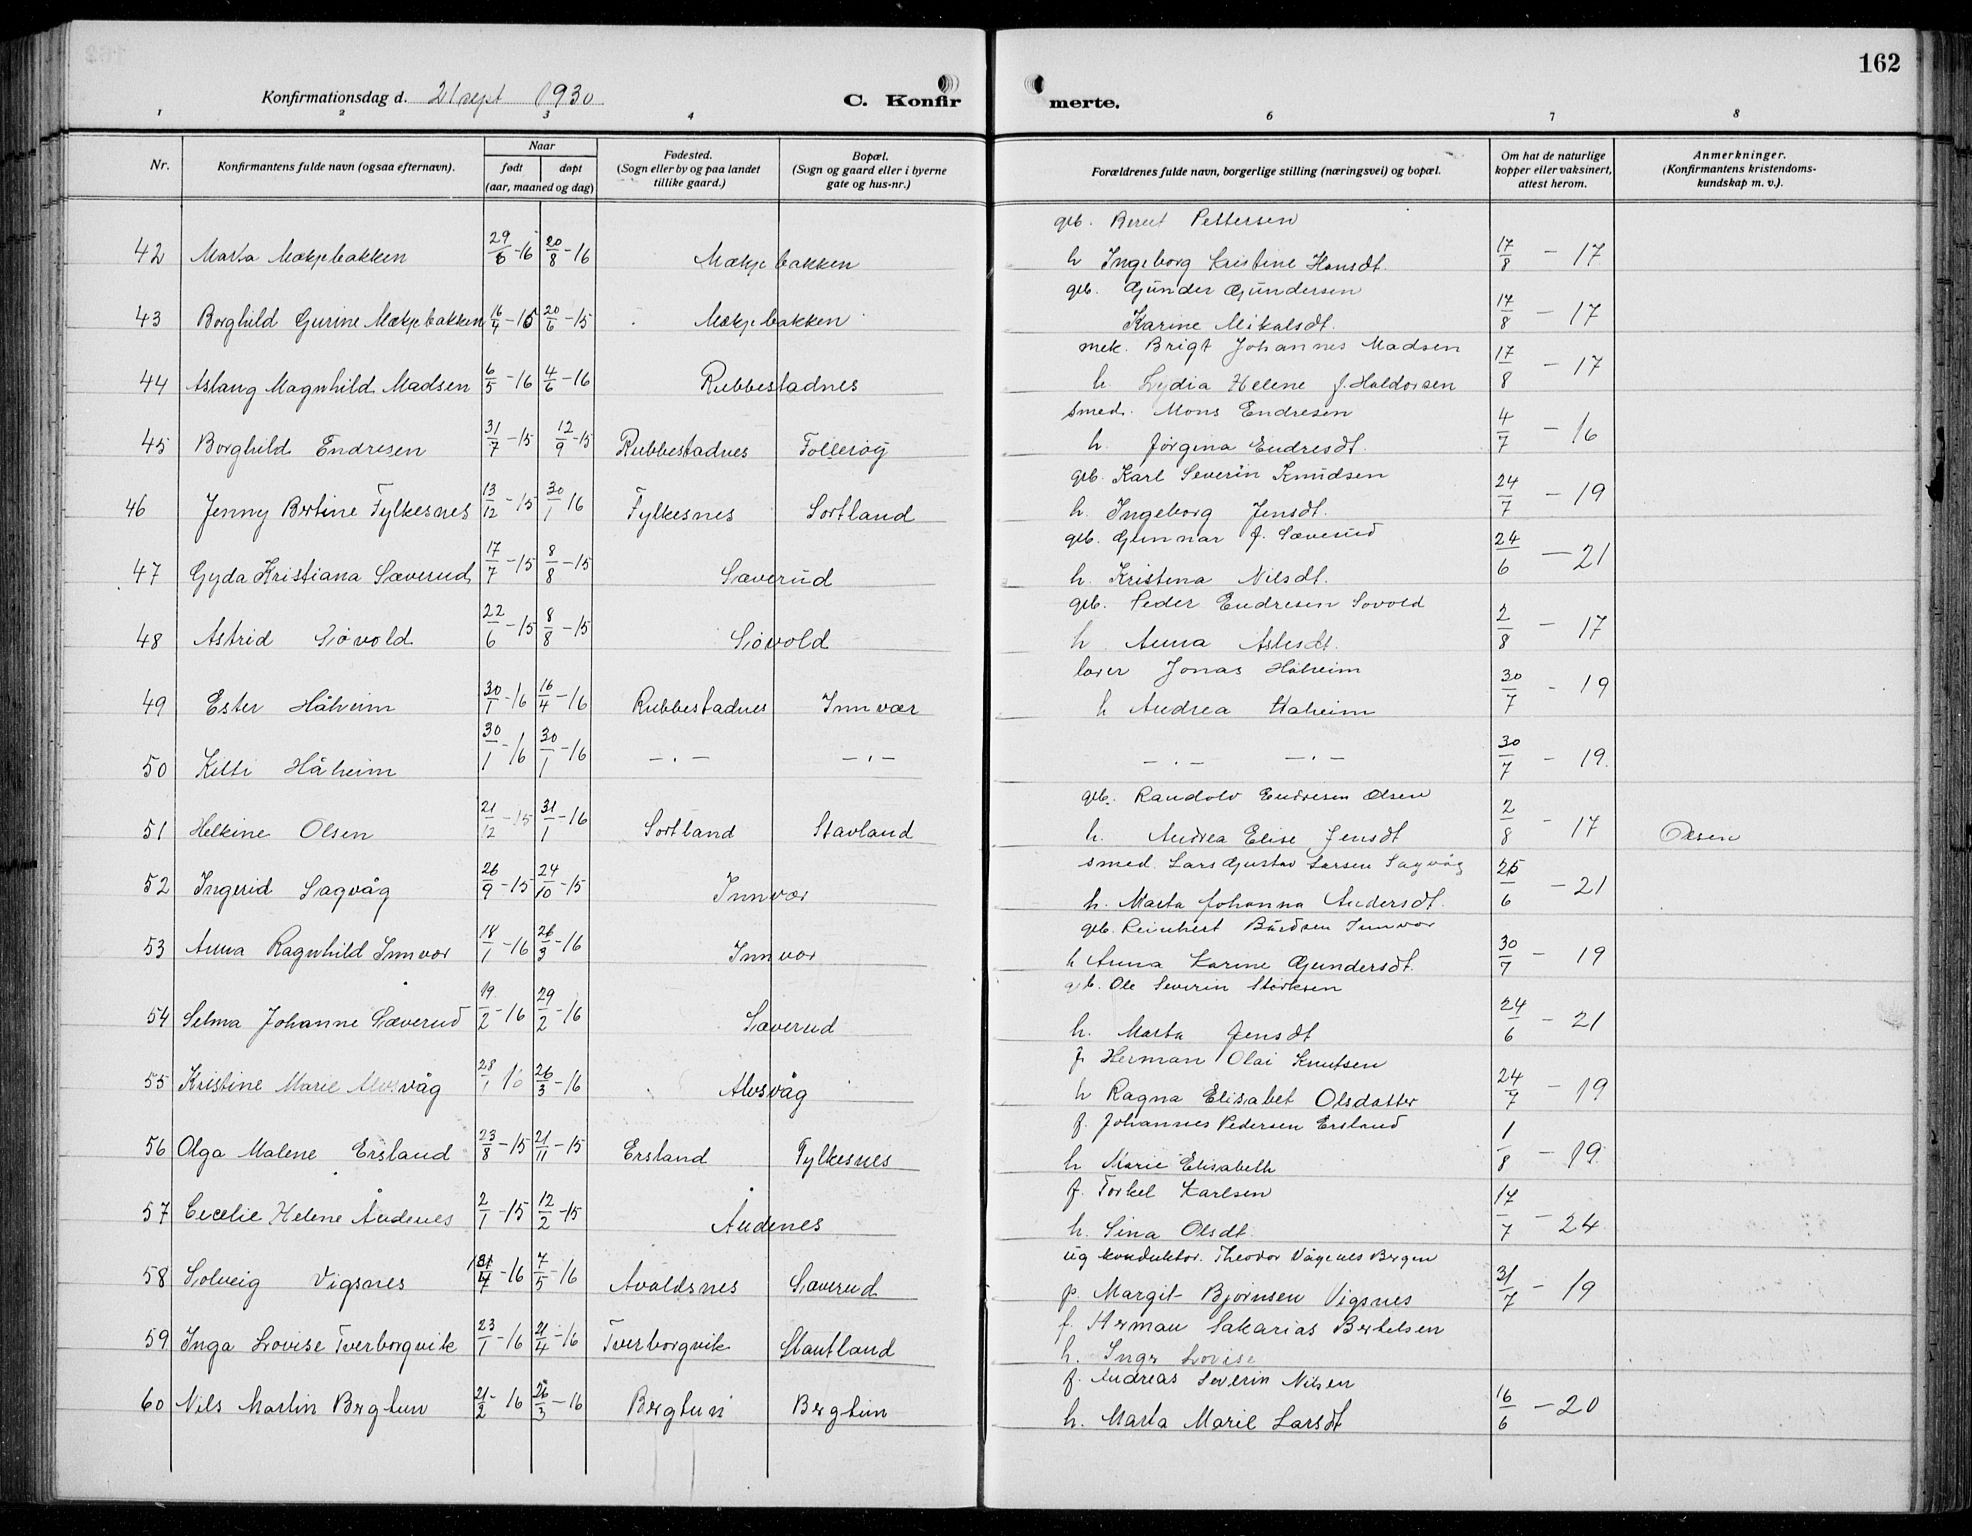 162
Konfirmationsdag d. 21 sept 1930
C. Konfirmerte.
1 2 3 4 6 7 8
Nr. Konfirmantens fulde navn (ogsaa efternavn). Naar født døpt (aar, maaned og dag) Fødested. (Sogn eller by og paa landet tillike gaard.) Bopæl. (Sogn og gaard eller i byerne gate og hus-nr.) Forældrenes fulde navn, borgerlige stilling (næringsvei) og bopæl. Om hat de naturlige kopper eller vaksinert, attest herom. Anmerkninger. (Konfirmantens kristendomskundskap m. v.).
gb. Berent Pettersen
42 Marta Mækjebakken 29/6-16 20/8-16 Mækjebakken h Ingeborg Kristine Hansdt. 17/8 - 17
gb. Gunder Gundersen
43 Borghild Gurine Mækjebakken 16/4-15 20/6-15 Mækjebakken Karine Mikalsdt. 17/8 - 17
mek. Brigt Johannes Madsen
44 Aslaug Magnhild Madsen 6/5-16 4/6-16 Rubbestadnes h. Lydia Helene f. Haldorsen 17/8 - 17
smed. Mons Endresen
45 Borghild Endresen 31/7-15 12/9-15 Rubbestadnes Follesøy h. Jørgina Endresdt. 4/7 - 16
gb. Karl Severin Knudsen
46 Jenny Bertine Fylkesnes 13/12-15 30/1 16 Fylkesnes Sortland h. Ingeborg Jensdt. 24/7 - 19
gb. Gunnar J. Sæverud
47 Gyda Kristiana Sæverud 17/7-15 8/8-15 Sæverud h. Kristena Nilsdt. 24/6 - 21
gb. Peder Endresen Søvold
48 Astrid Siøvold 22/6-15 8/8-15 Siøvold h. Anna Aslesdt. 2/8 - 17
lærer Jonas Håheim
49 Ester Håheim 30/1-16 16/4-16 Rubbestadnes Innvær h Andrea Håheim 30/7 - 19
50 Kitti Håheim 30/1-16 30/1-16 — . — — . — — . — — . — 30/7 - 19.
gb. Randolv Endresen Olsen
51 Helkine Olsen 21/12-15 31/1-16 Sortland Stavland h. Andrea Elise Jensdt 2/8 - 17 Olsen
smed. Lars Gustav Larsen Sagvåg
52 Ingerid Sagvåg 26/9-15 24/10-15 Innvær h. Marta Johanna Andersdt. 25/6 - 21
gb. Reinhert Bårdsen Innvær
53 Anna Ragnhild Innvær 18/1-16 26/3-16 Innvær h Anna Karine Gundersdt. 30/7 - 19
gb. Ole Severin Størksen
54 Selma Johanne Sæverud 19/2-16 29/2-16 Sæverud h. Marta Jensdt 24/6 - 21
f. Herman Olai Knutsen
55 Kristine Marie Alvsvåg 28/1 16 26/3-16 Alvsvåg h Ragna Elisabet Olsdatter 24/7 - 19
f. Johannes Pedersen Ersland
56 Olga Malene Ersland 23/8-15 21/11-15 Ersland Fylkesnes h Marie Elisabeth 1/8 - 19
f. Torkel Karlsen
57 Cecelie Helene Åudenes 2/1-15 12/2-15 Åudenes h. Sina Olsdt. 17/7 - 24
ug konduktør. Theodor Vågenes Bergen
58 Solveig Vigsnes /4-16 7/5-16 Avaldsnes Sæverud p. Margit Bjørnsen Vigsnes 31/7 - 19
f. Herman Sakarias Bertelsen
59 Inga Lovise Tverborgvik 23/1-16 21/4-16 Tverborgvik Stautland h. Inga Lovise
f. Andreas Severin Nilsen
60 Nils Martin Bergtun 21/2-16 26/3-16 Bergtun Bergtun h. Marta Marie Larsdt 16/6 - 20